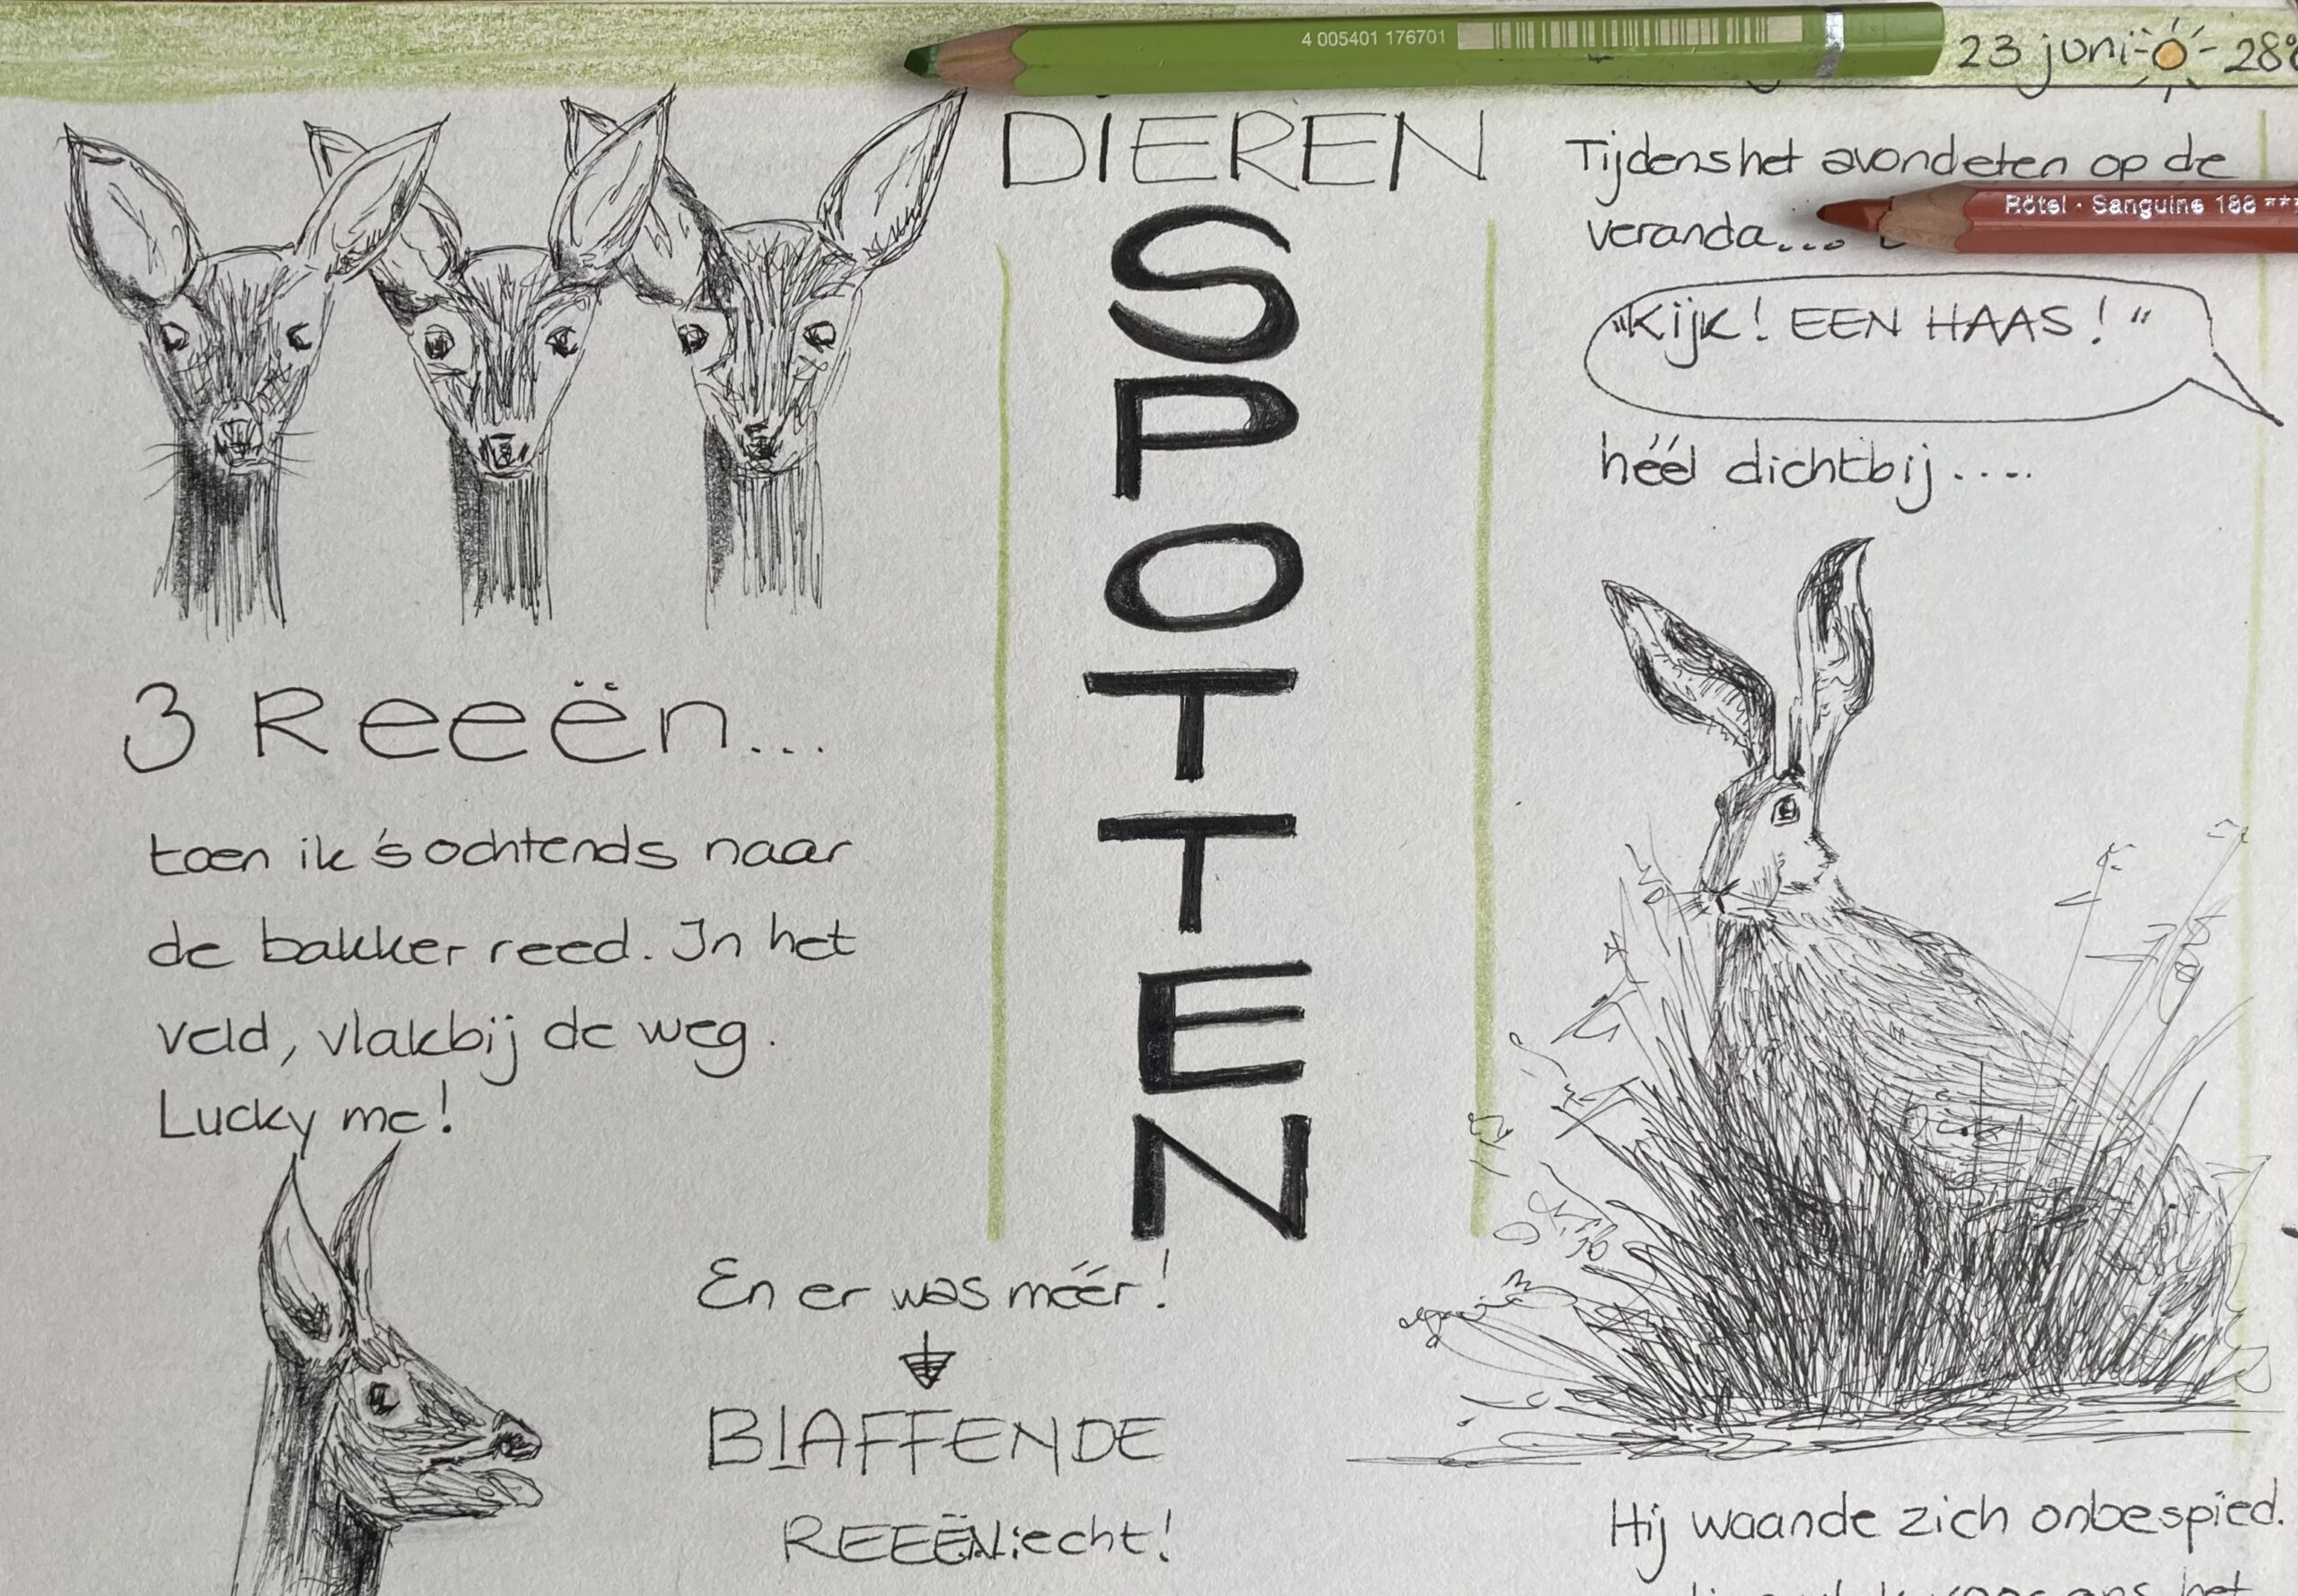 4 005401 176701
23 juni 28°
DIEREN
SPOTTEN
3 Reeën...
toen ik 's ochtends naar
de bakker reed. In het
veld, vlakbij de weg.
Lucky me!
En er was méér!
BLAFFENDE
REEËN: echt!
Tijdens het avondeten op de
veranda...
Rötel · Sanguine 188 ***
"Kijk! EEN HAAS!"
héél dichtbij....
Hij waande zich onbespied.